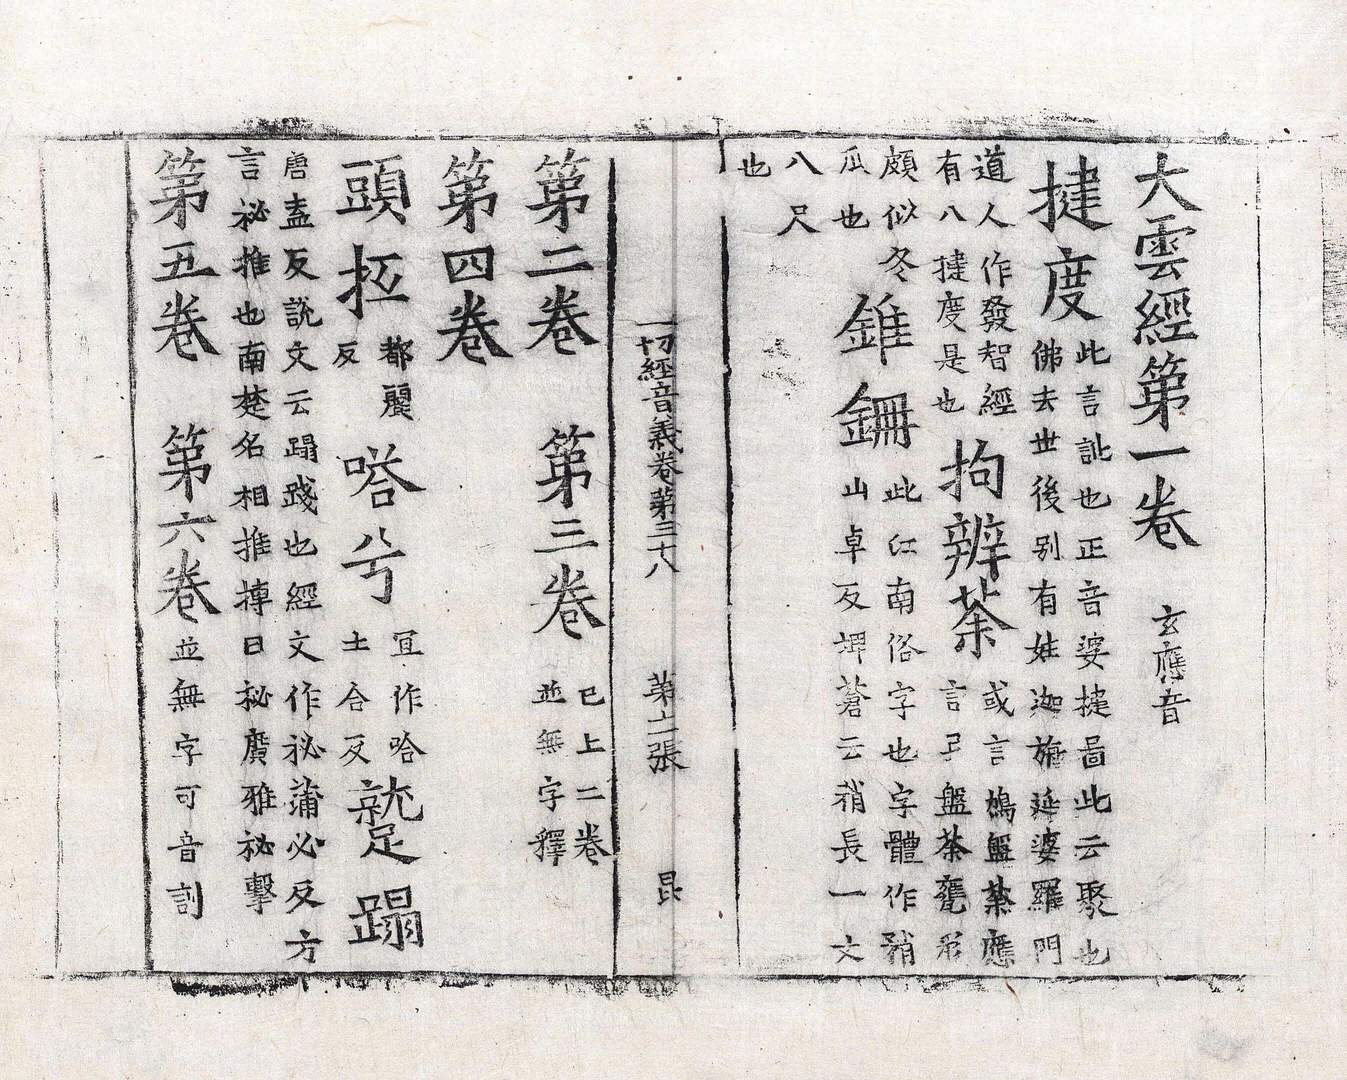 大雲經第一卷 玄應音
揵度 此言訛也正音婆揵啚此云聚也
佛去世後别有姓迦旃延婆羅門
道人作發智經
有八揵度是也 拘辨荼 或言鳩盤荼應
言弓盤荼甕形
頗似冬
瓜也 錐銏 此江南俗字也字體作矟
山卓反埤蒼云矟長一丈
八尺
也
一切經音義卷第三十八 第二張 昆
第二卷 第三卷 已上二卷
並無字釋
第四卷
頭抵 都麗
反 嗒兮 冝作哈
土合反 蹵蹋
唐盍反說文云蹋踐也經文作祕蒲必反方
言祕推也南楚名相推搏曰祕廣雅祕擊
第五卷 第六卷 並無字可音訓